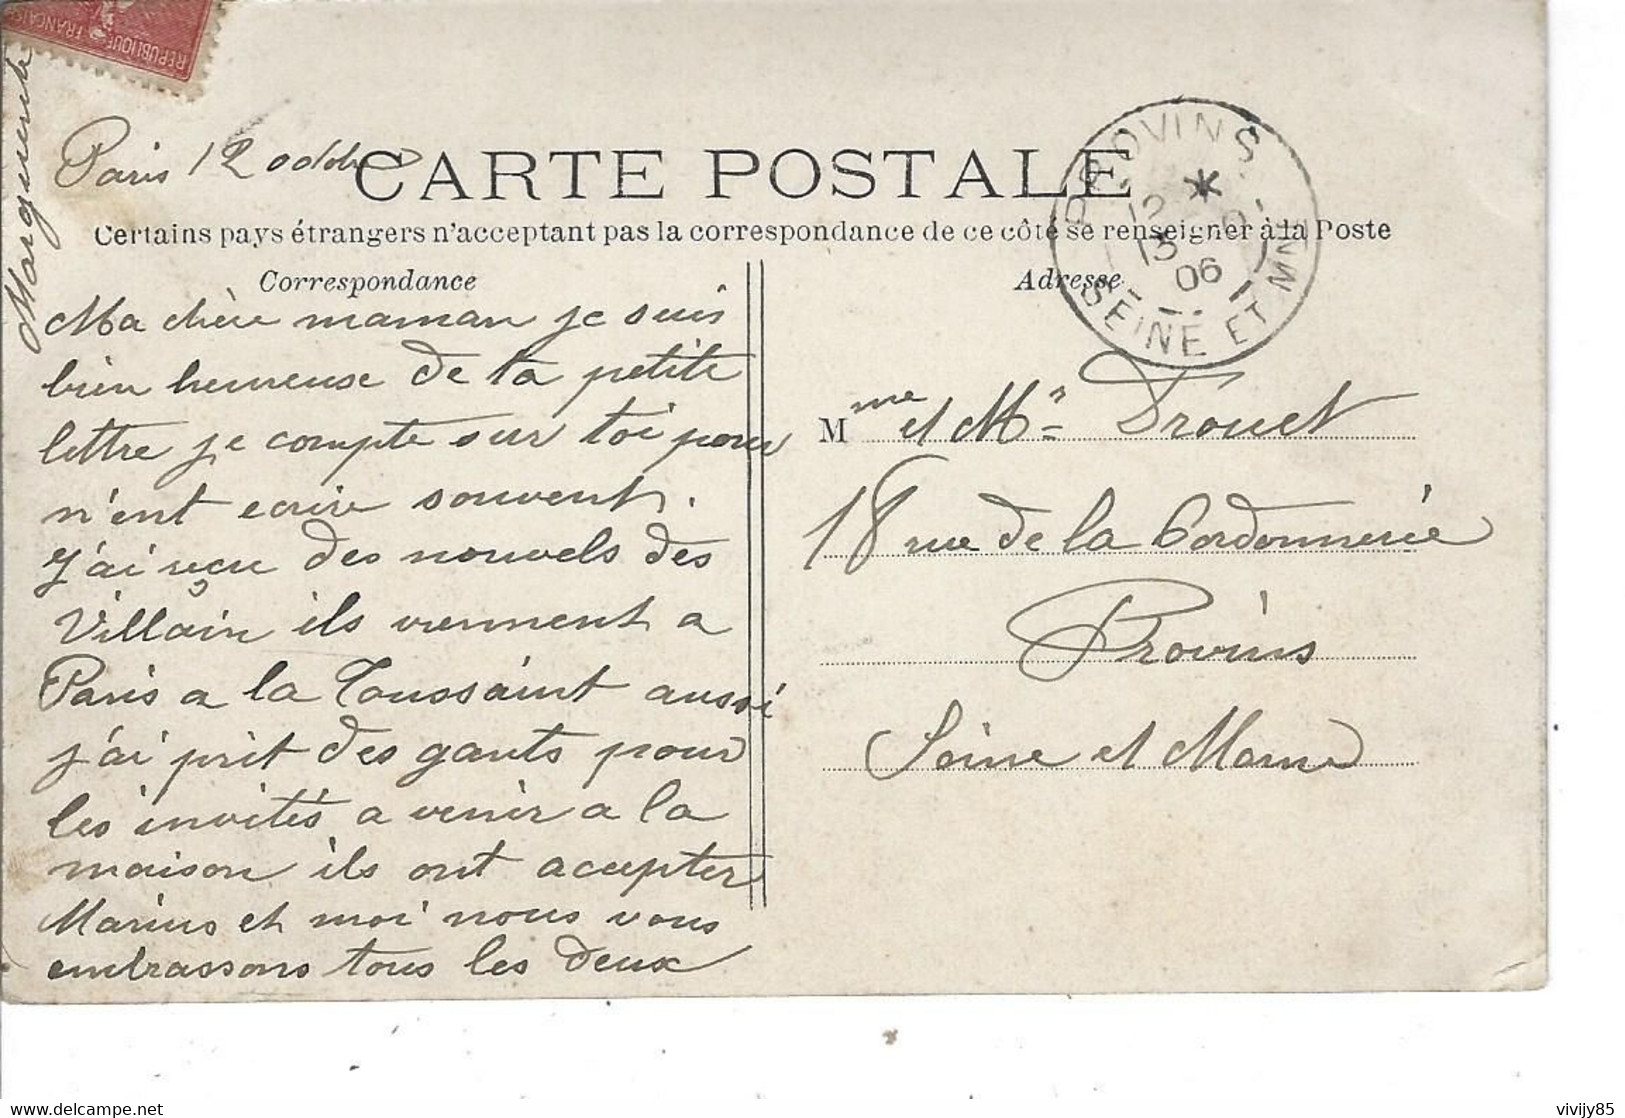 REPUBLIQUE FRANÇAISE
Marguerite
Paris 12 octobre
CARTE POSTALE
Certains pays étrangers n'acceptant pas la correspondance de ce côté se renseigner à la Poste
Correspondance
Adresse
PROVINS
12
13
06
SEINE ET MNE
Ma chère maman je suis
bien heureuse de ta petite
lettre je compte sur toi pour
n'ent ecrire souvent.
J'ai reçu des nouvels des
Villain ils viennent a
Paris a la Toussaint aussi
j'ai prit des gants pour
les invités a venir a la
maison ils ont accepter
Marius et moi nous vous
embrassons tous les deux
Mme et Mr Drouet
18 rue de la Cordonnerie
Provins
Seine et Marne
vivijy85